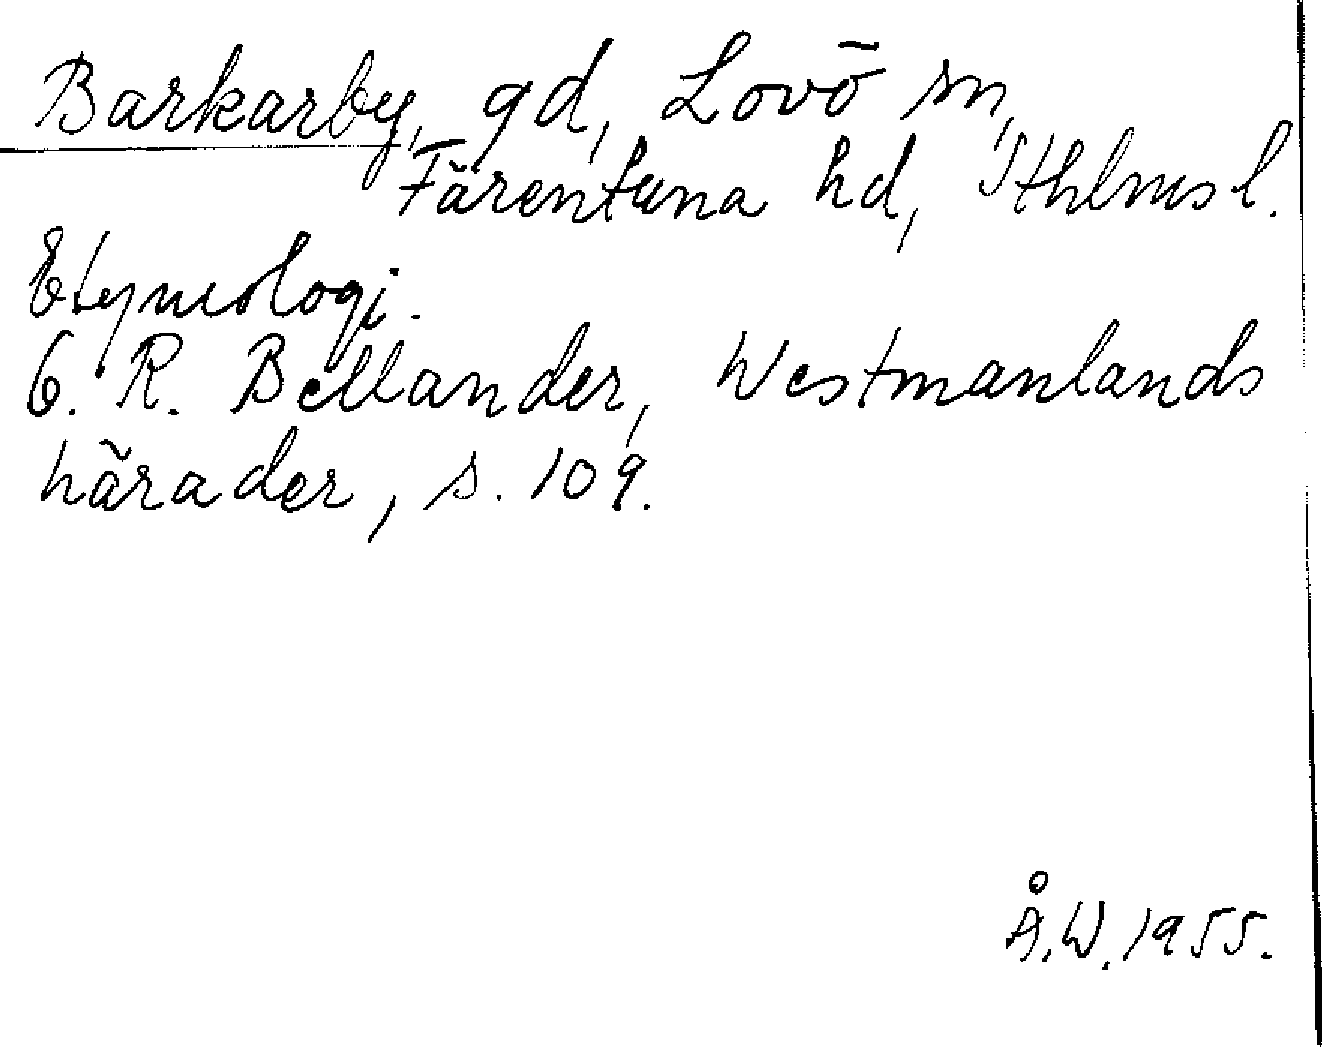 Barkarby, gd, Lovö sn,
Färentuna hd, Sthlms l.
Etymologi.
C. R. Bellander, Westmanlands
härader, s. 109.
Å.W. 1955.